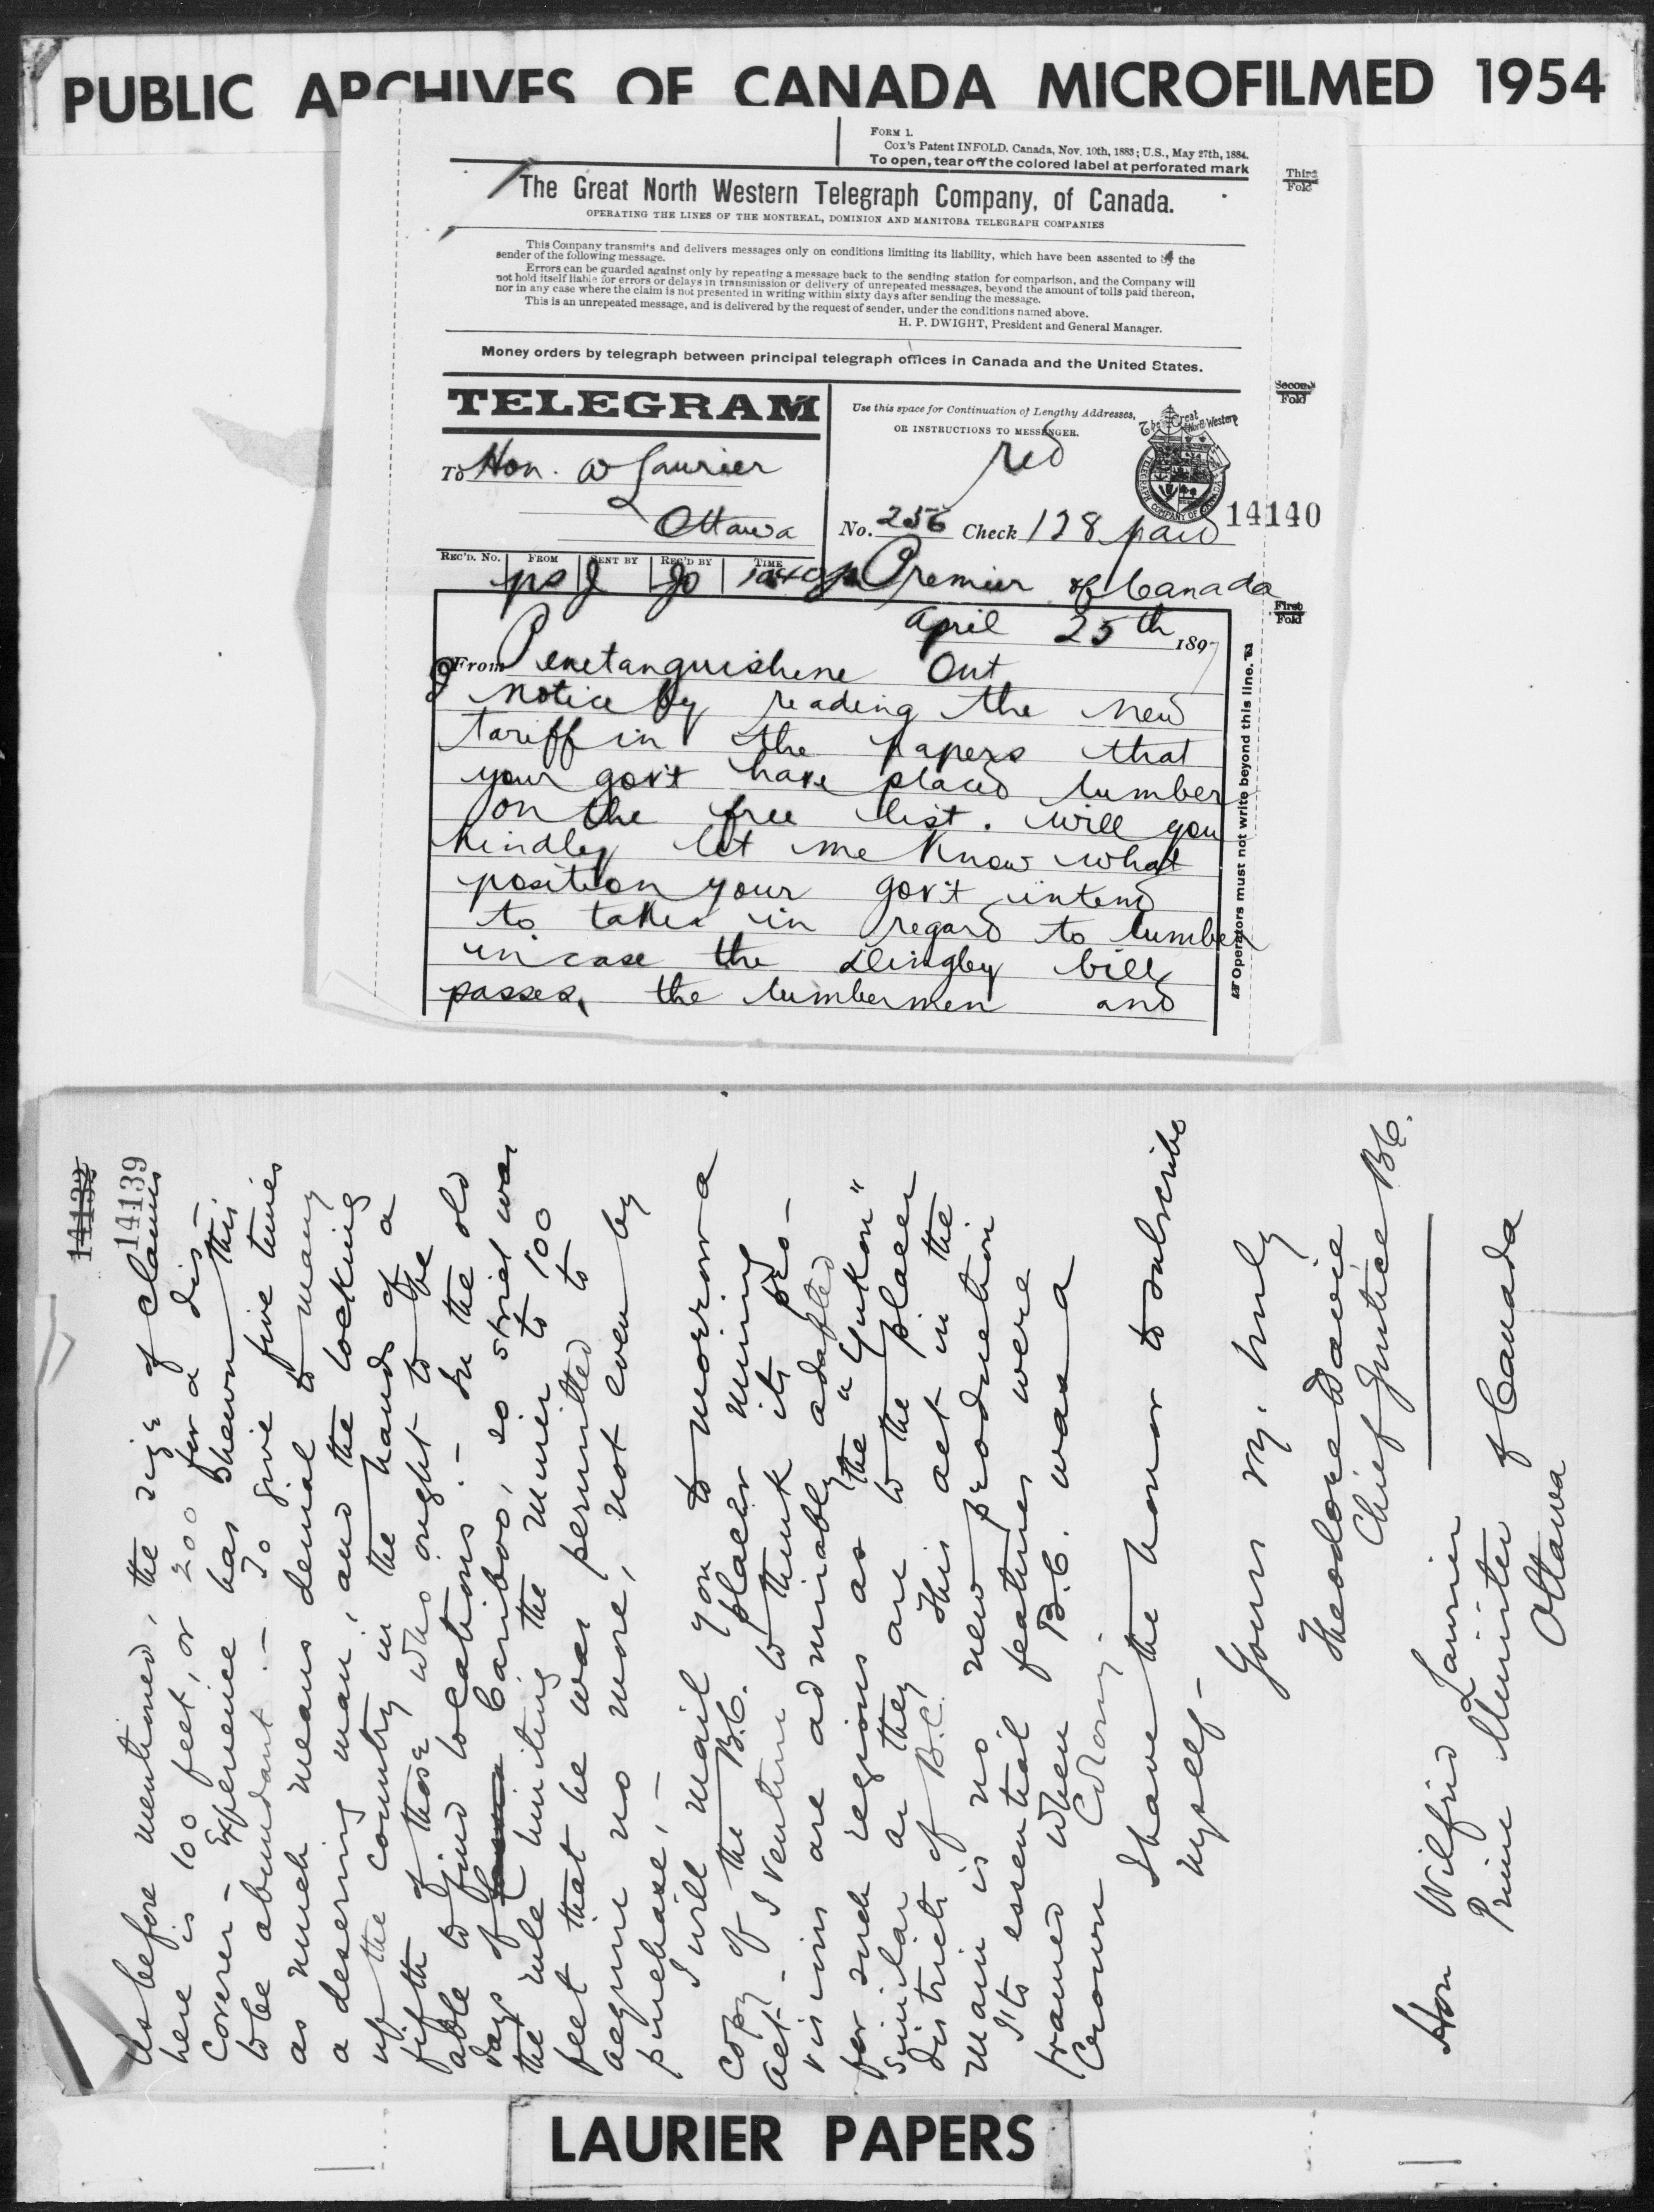 PUBLIC ARCHIVES OF CANADA MICROFILMED 1954
FORM 1.
Cox's Patent INFOLD. Canada, Nov. 10th, 1883; U.S., May 27th, 1884.
To open, tear off the colored label at perforated mark
Third
Fold
The Great North Western Telegraph Company, of Canada.
OPERATING THE LINES OF THE MONTREAL, DOMINION AND MANITOBA TELEGRAPH COMPANIES
This Company transmits and delivers messages only on conditions limiting its liability, which have been assented to by the
sender of the following message.
Errors can be guarded against only by repeating a message back to the sending station for comparison, and the Company will
not hold itself liable for errors or delays in transmission or delivery of unrepeated messages, beyond the amount of tolls paid thereon,
nor in any case where the claim is not presented in writing within sixty days after sending the message.
This is an unrepeated message, and is delivered by the request of sender, under the conditions named above.
H. P. DWIGHT, President and General Manager.
Money orders by telegraph between principal telegraph offices in Canada and the United States.
Second
Fold
TELEGRAM
Use this space for Continuation of Lengthy Addresses,
OR INSTRUCTIONS TO MESSENGER.
The Great North Western
TELEGRAPH COMPANY OF CANADA
To Hon. W Laurier
Ottawa
No. 256 Check 128 paid
14140
REC'D. No. FROM SENT BY REC'D BY TIME
Premier of Canada
First
Fold
April 25th 1897
From Penetanguishene Ont
notice by reading the new
tariff in the papers that
your gov't have placed lumber
on the free list. will you
kindly let me know what
position your gov't intend
to take in regard to lumber
in case the Dingley bill
passes, the lumbermen and
Operators must not write beyond this line.
14132
14139
As before mentioned, the size of claims
here is 100 feet, or 200 for a dis-
coverer - Experience has shewn this
to be abundant. - To give five times
as much means denial to many
a deserving man, and the locking
up the country in the hands of a
fifth of those who ought to be
able to find locations. - In the old
days of Cariboo, so strict was
the rule limiting the miner to 100
feet that he was permitted to
acquire no more, not even by
purchase, -
I will mail you to morrow a
copy of the B.C. placer mining
act. - I venture to think its pro-
visions are admirably adapted
for such regions as the "Yukon"
similar as they are to the placer
districts of B.C. This act in the
main is no new production
Its essential features were
framed when B.C. was a
Crown Colony.
I have the honor to subscribe
myself -
Yours vy. truly
Theodore Davie
Chief Justice B.C.
Hon Wilfrid Laurier
Prime Minister of Canada
Ottawa
LAURIER PAPERS